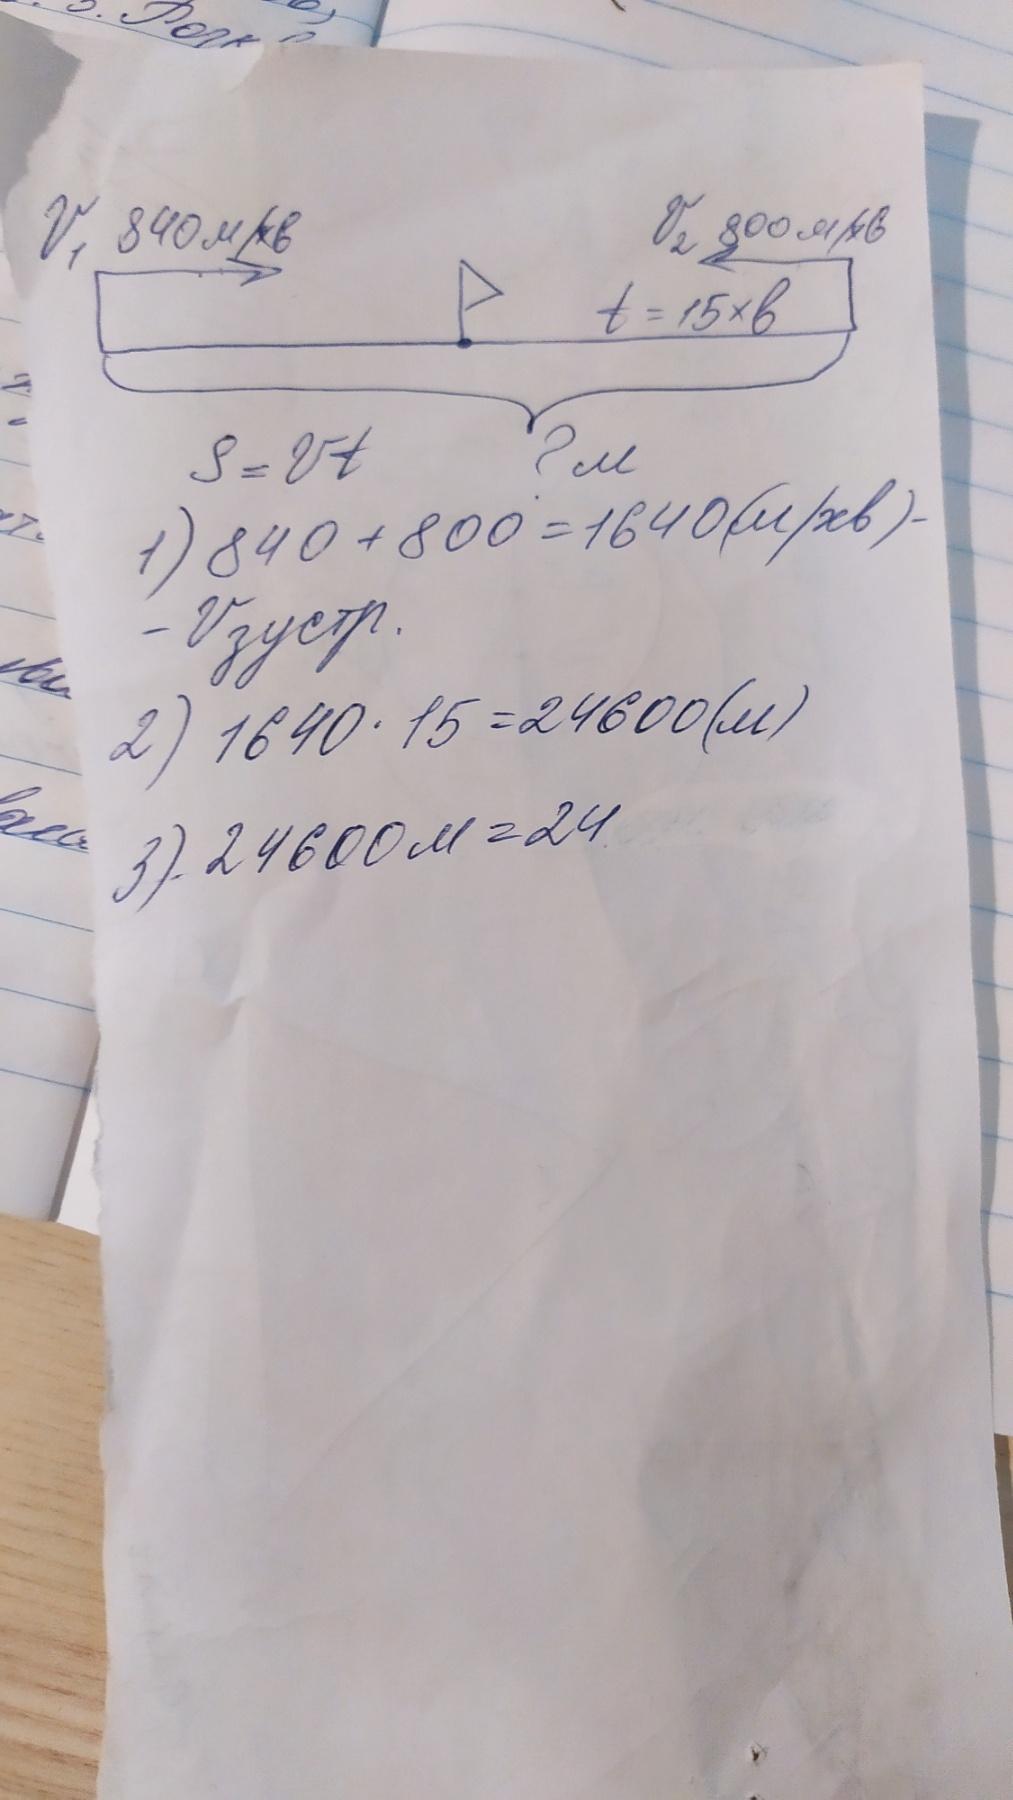 V₁ 840 м/хв
V₂ 800 м/хв
t = 15 хв
S = Vt
? м
1) 840 + 800 = 1640 (м/хв) -
- Vзустр.
2) 1640 · 15 = 24600 (м)
3). 24600 м = 24